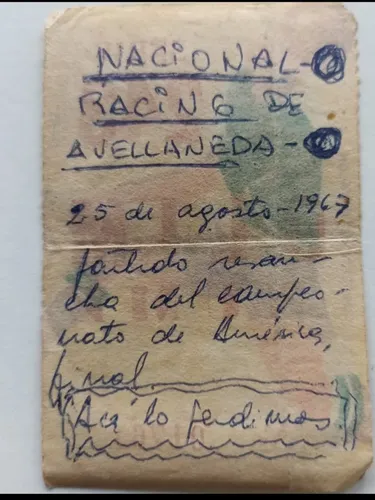 NACIONAL - 0
RACING DE
AVELLANEDA - 0
25 de agosto - 1967
partido revan-
cha del campeo-
nato de América,
final.
Acá lo perdimos.